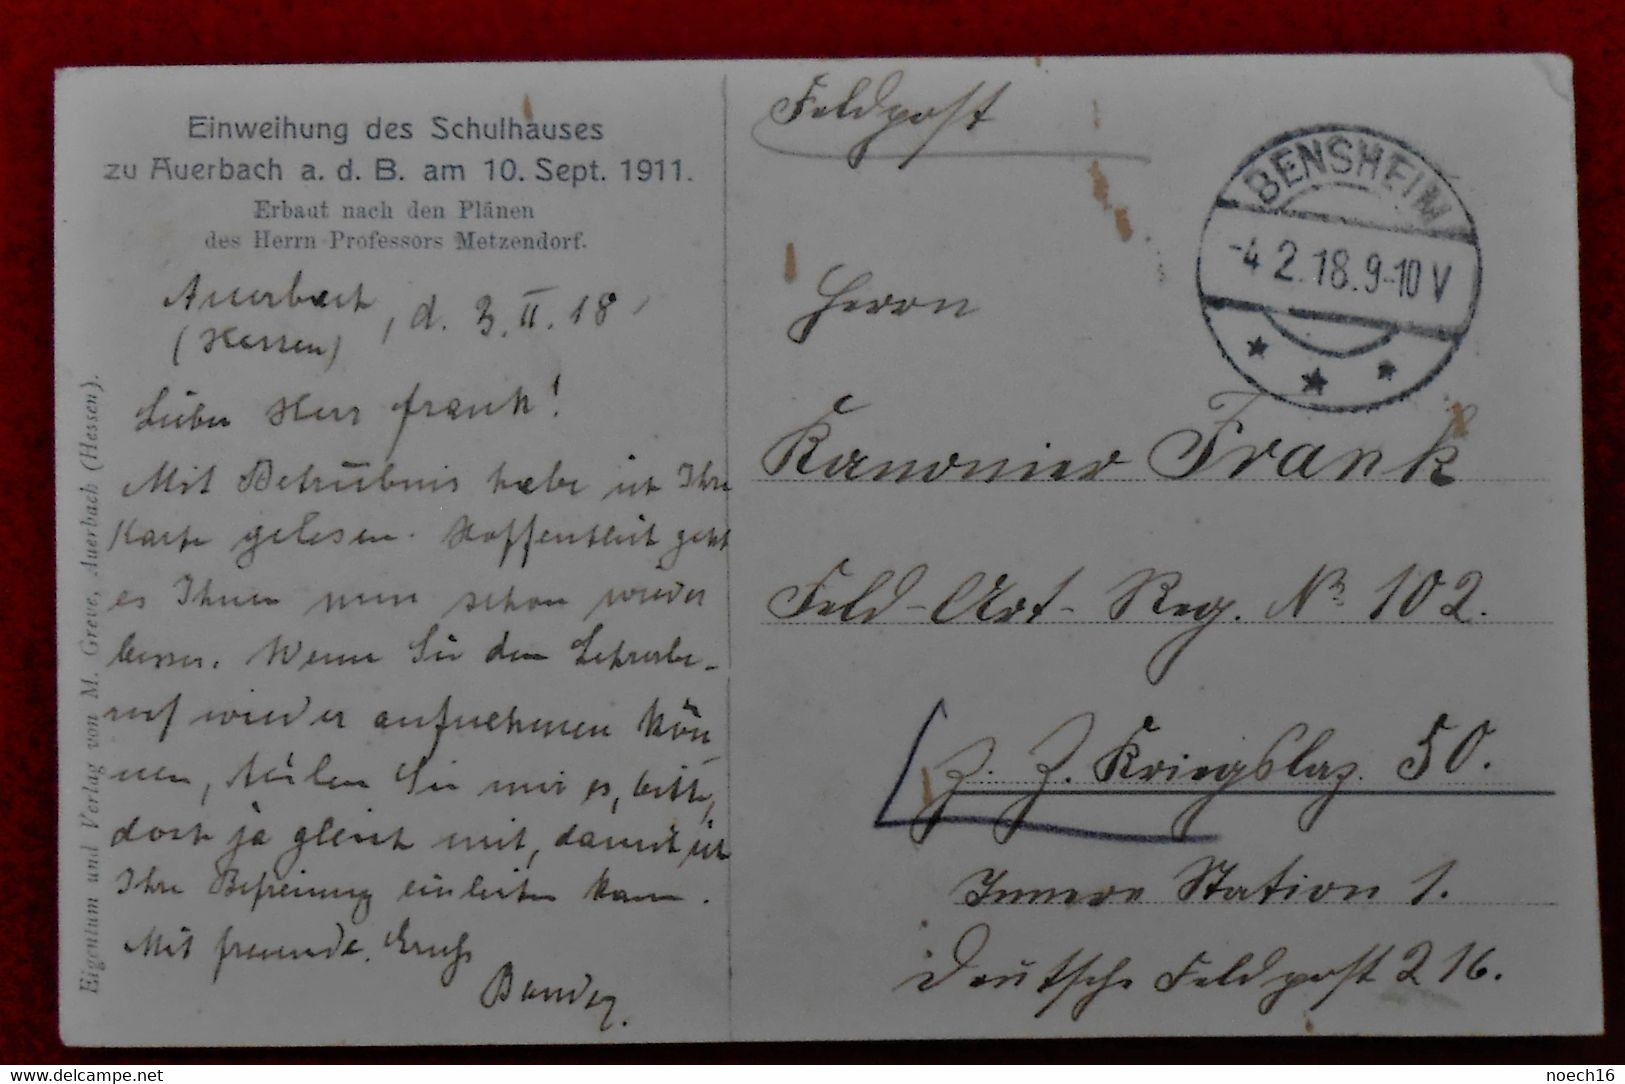 Einweihung des Schulhauses
zu Auerbach a. d. B. am 10. Sept. 1911.
Erbaut nach den Plänen
des Herrn Professors Metzendorf.
Auerbach, d. 3. II. 18
(Hessen)
Lieber Herr Frank!
Mit Betrübnis habe ich Ihre
Karte gelesen. Hoffentlich geht
es Ihnen nun schon wieder
besser. Wenn Sie den Lehrerbe-
ruf wieder aufnehmen kön
nen, teilen Sie mir es, bitte,
doch ja gleich mit, damit ich
Ihre Befreiung einleiten kann.
Mit freundl. Gruß
Eigentum und Verlag von M. Greve, Auerbach (Hessen).
Feldpost
BENSHEIM
-4 2.18.9-10 V
Herrn
Kanonier Frank
Feld-Art-Reg. No 102.
z. Z. Kriegslaz. 50.
Innere Station 1.
Deutsche Feldpost 216.
noech16